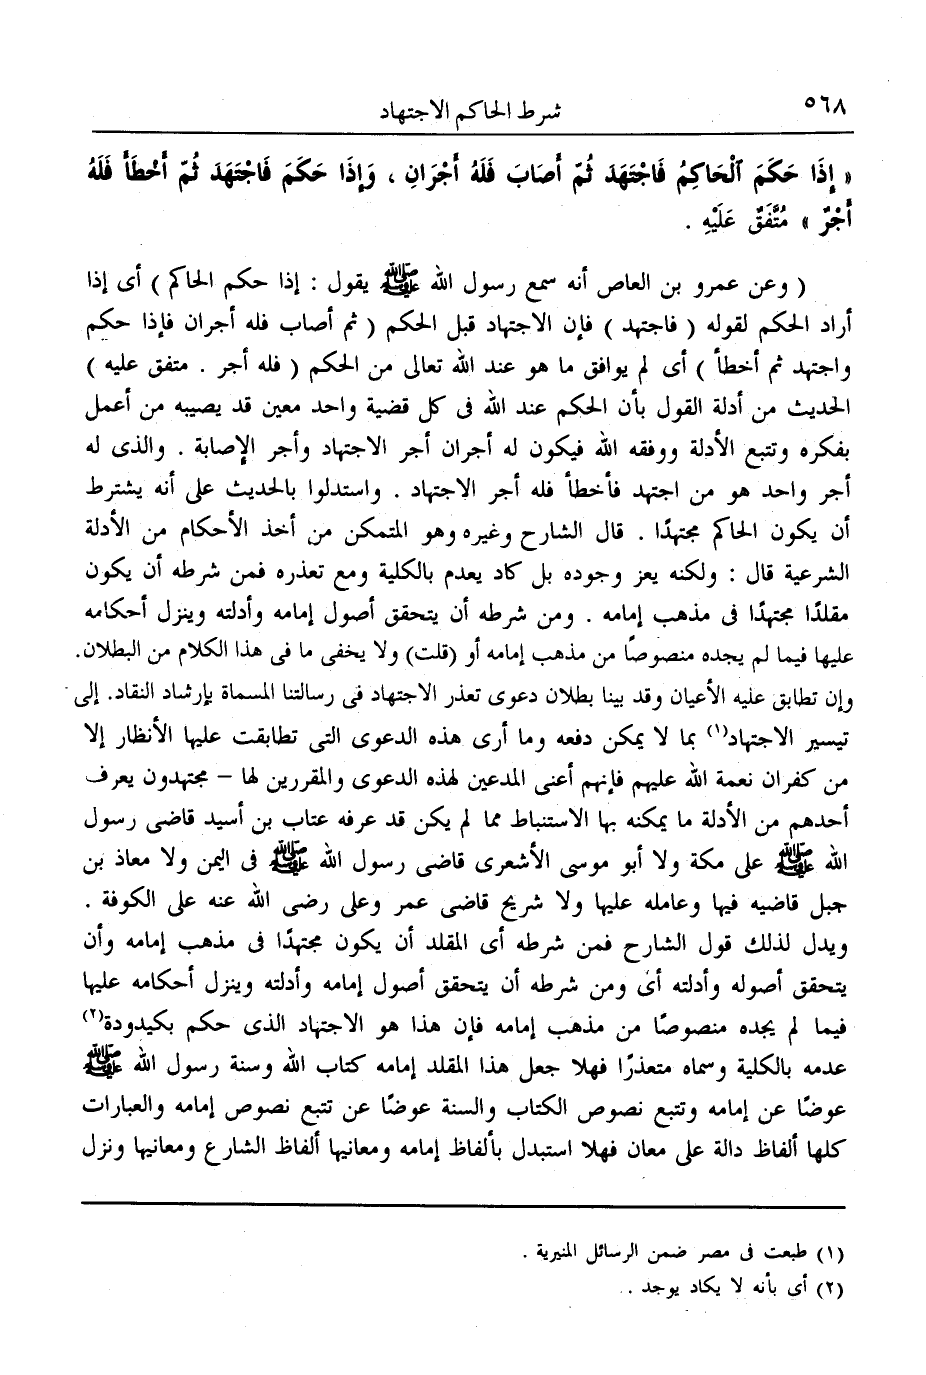 ٥٦٨
شرط الحاكم الاجتهاد
« إِذَا حَكَمَ ٱلْحَاكِمُ فَاجْتَهَدَ ثُمّ أَصَابَ فَلَهُ أَجْرَانِ ، وَإِذَا حَكَمَ فَاجْتَهَدَ ثُمّ أَخْطَأَ فَلَهُ
أَجْرٌ » مُتَّفَقٌ عَلَيْهِ .
( وعن عمرو بن العاص أنه سمع رسول الله ﷺ يقول : إذا حكم الحاكم ) أى إذا
أراد الحكم لقوله ( فاجتهد ) فإن الاجتهاد قبل الحكم ( ثم أصاب فله أجران فإذا حكم
واجتهد ثم أخطأ ) أى لم يوافق ما هو عند الله تعالى من الحكم ( فله أجر . متفق عليه )
الحديث من أدلة القول بأن الحكم عند الله فى كل قضية واحد معين قد يصيبه من أعمل
بفكره وتتبع الأدلة ووفقه الله فيكون له أجران أجر الاجتهاد وأجر الإصابة . والذى له
أجر واحد هو من اجتهد فأخطأ فله أجر الاجتهاد . واستدلوا بالحديث على أنه يشترط
أن يكون الحاكم مجتهدًا . قال الشارح وغيره وهو المتمكن من أخذ الأحكام من الأدلة
الشرعية قال : ولكنه يعز وجوده بل كاد يعدم بالكلية ومع تعذره فمن شرطه أن يكون
مقلدًا مجتهدًا فى مذهب إمامه . ومن شرطه أن يتحقق أصول إمامه وأدلته وينزل أحكامه
عليها فيما لم يجده منصوصًا من مذهب إمامه أو (قلت) ولا يخفى ما فى هذا الكلام من البطلان.
وإن تطابق عليه الأعيان وقد بينا بطلان دعوى تعذر الاجتهاد فى رسالتنا المسماة بإرشاد النقاد. إلى
تيسير الاجتهاد(١) بما لا يمكن دفعه وما أرى هذه الدعوى التى تطابقت عليها الأنظار إلا
من كفران نعمة الله عليهم فإنهم أعنى المدعين لهذه الدعوى والمقررين لها – مجتهدون يعرف
أحدهم من الأدلة ما يمكنه بها الاستنباط مما لم يكن قد عرفه عتاب بن أسيد قاضى رسول
الله ﷺ على مكة ولا أبو موسى الأشعرى قاضى رسول الله ﷺ فى اليمن ولا معاذ بن
جبل قاضيه فيها وعامله عليها ولا شريح قاضى عمر وعلى رضى الله عنه على الكوفة .
ويدل لذلك قول الشارح فمن شرطه أى المقلد أن يكون مجتهدًا فى مذهب إمامه وأن
يتحقق أصوله وأدلته أى ومن شرطه أن يتحقق أصول إمامه وأدلته وينزل أحكامه عليها
فيما لم يجده منصوصًا من مذهب إمامه فإن هذا هو الاجتهاد الذى حكم بكيدودة(٢)
عدمه بالكلية وسماه متعذرًا فهلا جعل هذا المقلد إمامه كتاب الله وسنة رسول الله ﷺ
عوضًا عن إمامه وتتبع نصوص الكتاب والسنة عوضًا عن تتبع نصوص إمامه والعبارات
كلها ألفاظ دالة على معان فهلا استبدل بألفاظ إمامه ومعانيها ألفاظ الشارع ومعانيها ونزل
(١) طبعت فى مصر ضمن الرسائل المنيرية .
(٢) أى بأنه لا يكاد يوجد .